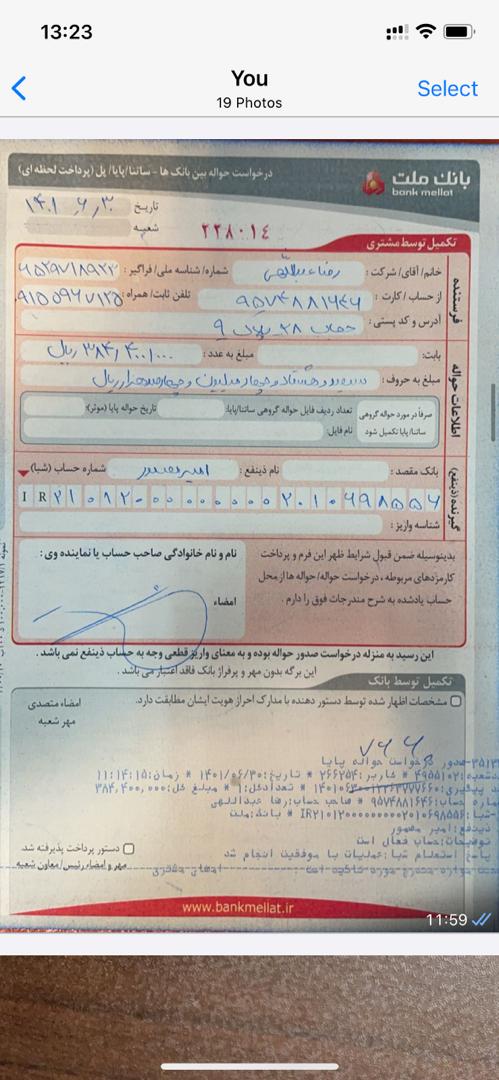 13:23
You
19 Photos
Select
بانک ملت
bank mellat
درخواست حواله بین بانک ها - ساتنا/پایا/پل (پرداخت لحظه ای)
تاریخ ۱۴۰۱,۶,۳۰
شعبه
۲۲۸۰۱٤
تکمیل توسط مشتری
فرستنده
خانم/آقای/شرکت: رضا عبداللهی شماره/شناسه ملی/فراگیر:
از حساب/کارت: ۹۵۷۴۸۸۱۶۴۶ تلفن ثابت/همراه:
آدرس و کد پستی: ۲۸ پلاک ۹
اطلاعات حواله
بابت: مبلغ به عدد: ۳۸۴,۴۰۰,۰۰۰ ریال
مبلغ به حروف: سیصد و هشتاد و چهار میلیون و چهارصد هزار ریال
صرفاً در مورد حواله گروهی ساتنا/پایا تکمیل شود
تعداد ردیف فایل حواله گروهی ساتنا/پایا: تاریخ حواله پایا (موثر):
نام فایل:
گیرنده (ذینفع)
بانک مقصد: نام ذینفع: امیر منصور شماره حساب (شبا)
IR ۲۱۰۱۲۰۰۰۰۰۰۰۰۰۲۰۱۰۶۹۸۵۵۶
شناسه واریز:
بدینوسیله ضمن قبول شرایط ظهر این فرم و پرداخت
کارمزدهای مربوطه، درخواست حواله/حواله ها از محل
حساب یادشده به شرح مندرجات فوق را دارم.
نام و نام خانوادگی صاحب حساب یا نماینده وی:
امضاء
این رسید به منزله درخواست صدور حواله بوده و به معنای واریز قطعی وجه به حساب ذینفع نمی باشد.
این برگه بدون مهر و پرفراژ بانک فاقد اعتبار می باشد.
تکمیل توسط بانک
مشخصات اظهار شده توسط دستور دهنده با مدارک احراز هویت ایشان مطابقت دارد.
امضاء متصدی
مهر شعبه
۷۶۶
صدور درخواست حواله پایا
۴۹۵۵۱۰۲ * کاربر:۲۶۶۲۵۴ * تاریخ:۱۴۰۱/۰۶/۳۰ * زمان:۱۱:۱۴:۱۵
تعدادکل:۱ * مبلغ کل:۳۸۴,۴۰۰,۰۰۰
۹۵۷۴۸۸۱۶۴۶ * صاحب حساب:رضا عبداللهی
IR۲۱۰۱۲۰۰۰۰۰۰۰۰۰۲۰۱۰۶۹۸۵۵۶ * بانک:ملت
ذینفع:امیر منصور
توضیحات:حساب فعال است
پاسخ استعلام شبا:عملیات با موفقیت انجام شد
دستور پرداخت پذیرفته شد
مهر و امضاء رئیس/معاون شعبه
www.bankmellat.ir
11:59